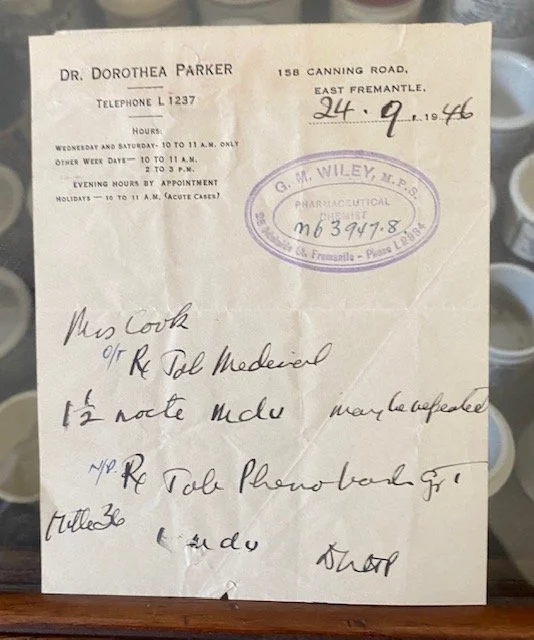 DR. DOROTHEA PARKER
TELEPHONE L 1237
HOURS:
WEDNESDAY AND SATURDAY- 10 TO 11 A.M. ONLY
OTHER WEEK DAYS— 10 TO 11 A.M.
2 TO 3 P.M.
EVENING HOURS BY APPOINTMENT
HOLIDAYS — 10 TO 11 A.M. (ACUTE CASES)
158 CANNING ROAD,
EAST FREMANTLE.
24 . 9 . 1946
G. M. WILEY, M.P.S.
PHARMACEUTICAL
CHEMIST
St. Fremantle - Phone L
Mrs Cook
Rx Tab Medinal
1 1/2 nocte mdu may be repeated
N/R. Rx Tab Phenobarb gr 1
Mitte 36
1 mdu